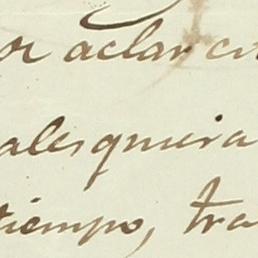 or aclar
alesquiera
tiempo, tra